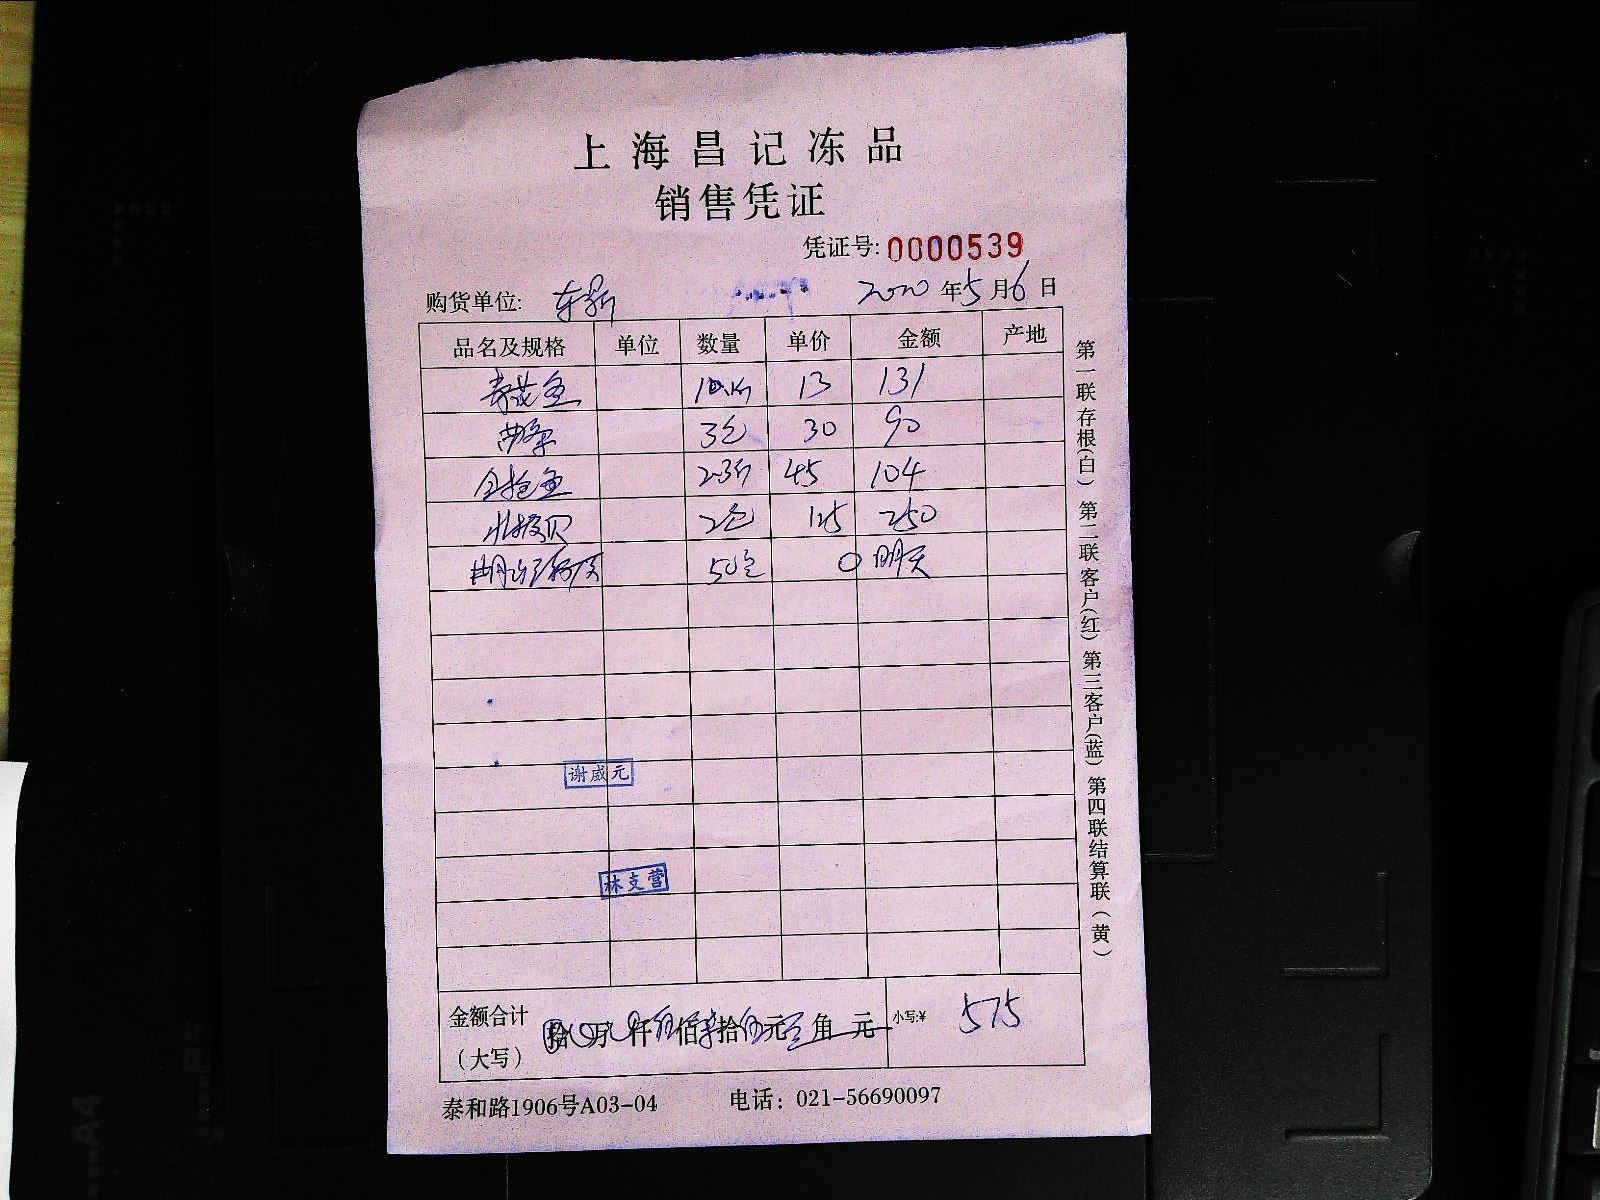 上海昌记冻品
销售凭证
凭证号: 0000539
购货单位: 东新 2020年5月6日
品名及规格 单位 数量 单价 金额 产地
13 131
3包 30 90
2.3斤 45 104
2包 125 250
50包 0 明天
谢威元
林支营
金额合计 拾 万 仟 佰 拾 元 角 元 小写:¥ 575
（大写）
泰和路1906号A03-04 电话：021-56690097
第一联存根(白) 第二联客户(红) 第三客户(蓝) 第四联结算联(黄)